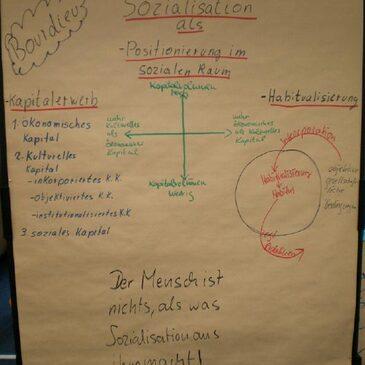 Bourdieu
Sozialisation
als
-Positionierung im
sozialen Raum
-Kapitalerwerb
1. ökonomisches
Kapital
2. Kulturelles
Kapital
-inkorporiertes K.K.
-objektiviertes K.K.
-institutionalisiertes K.K
3. soziales Kapital
Kapitalvolumen
mehr
kulturelles
als
ökonomisches
Kapital
mehr
ökonomisches
als kulturelles
Kapital
Kapitalvolumen
wenig
-Habitualisierung
Inkorporation
Habitualisierung
Habitus
objektive
gesellschaft-
liche
Bedingungen
Der Mensch ist
nichts, als was
Sozialisation aus
ihm macht!